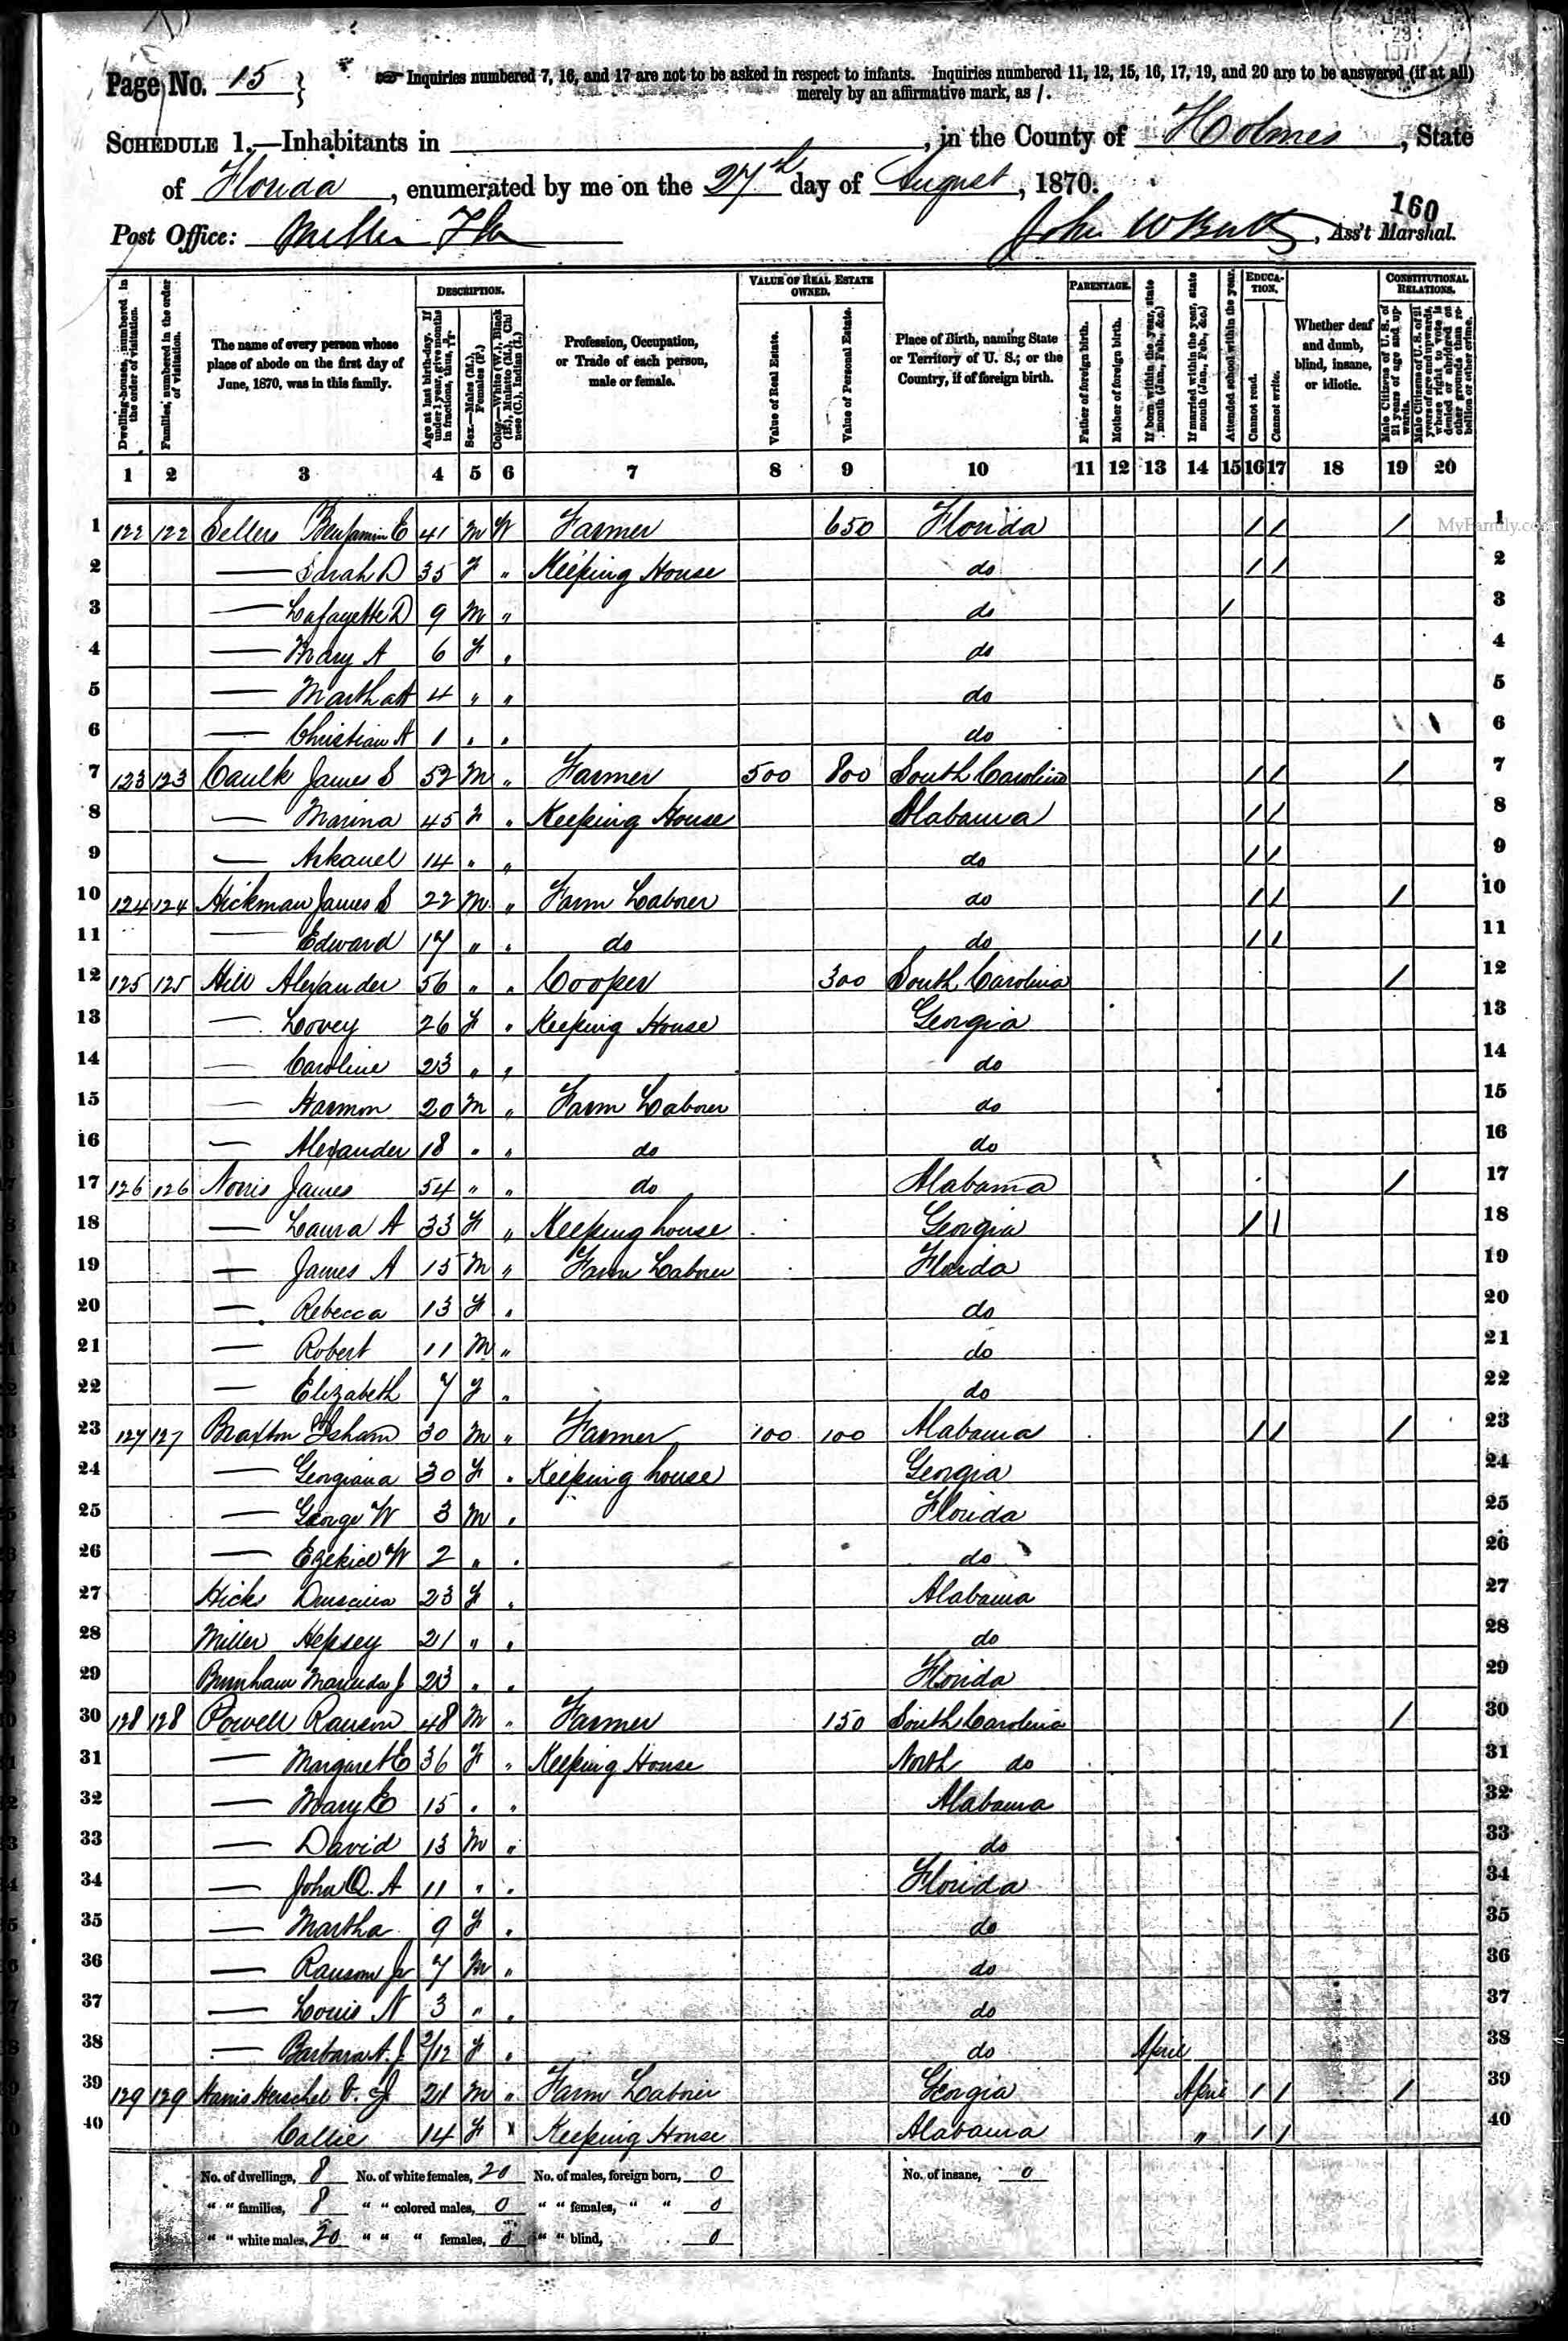 Page No. 15 } Inquiries numbered 7, 16, and 17 are not to be asked in respect to infants. Inquiries numbered 11, 12, 15, 16, 17, 19, and 20 are to be answered (if at all)
merely by an affirmative mark, as /.
SCHEDULE 1.—Inhabitants in , in the County of Holmes, State
of Florida, enumerated by me on the 27th day of August, 1870.
160
Post Office: Fla John W , Ass't Marshal.
Dwelling-houses, numbered in the order of visitation.
Families, numbered in the order of visitation.
The name of every person whose place of abode on the first day of June, 1870, was in this family.
DESCRIPTION.
Age at last birth-day. If under 1 year, give months in fractions, thus,
Sex.—Males (M.), Females (F.)
Color.—White (W.), Black (B.), Mulatto (M.), Chinese (C.), Indian (I.)
Profession, Occupation, or Trade of each person, male or female.
VALUE OF REAL ESTATE OWNED.
Value of Real Estate.
Value of Personal Estate.
Place of Birth, naming State or Territory of U. S.; or the Country, if of foreign birth.
PARENTAGE.
Father of foreign birth.
Mother of foreign birth.
If born within the year, state month (Jan., Feb., &c.)
If married within the year, state month (Jan., Feb., &c.)
Attended school within the year.
EDUCATION.
Cannot read.
Cannot write.
Whether deaf and dumb, blind, insane, or idiotic.
CONSTITUTIONAL RELATIONS.
Male Citizens of U. S. of 21 years of age and upwards.
Male Citizens of U. S. of 21 years of age and upwards, whose right to vote is denied or abridged on other grounds than rebellion or other crime.
1 2 3 4 5 6 7 8 9 10 11 12 13 14 15 16 17 18 19 20
1 122 122 Sellers Benjamin E 41 M W Farmer 650 Florida / / / 1
MyFamily.com
2 — Sarah D 35 F " Keeping House do / / 2
3 — Lafayette D 9 M " do / 3
4 — Mary A 6 F " do 4
5 — Martha A 4 " " do 5
6 — Christian A 1 " " do 6
7 123 123 Caulk James S 52 M " Farmer 500 800 South Carolina / / / 7
8 — Marina 45 F " Keeping House Alabama / / 8
9 — 14 " " do / / 9
10 124 124 Hickman James S 22 M " Farm Laborer do / / / 10
11 — Edward 17 " " do do / / 11
12 125 125 Hill Alexander 56 " " Cooper 300 South Carolina / 12
13 — Lovey 26 F " Keeping House Georgia 13
14 — Caroline 23 " " do 14
15 — Harmon 20 M " Farm Laborer do 15
16 — Alexander 18 " " do do 16
17 126 126 Norris James 54 " " do Alabama / 17
18 — Laura A 33 F " Keeping house Georgia / / 18
19 — James A 15 M " Farm Laborer Florida 19
20 — Rebecca 13 F " do 20
21 — Robert 11 M " do 21
22 — Elizabeth 7 F " do 22
23 127 127 Braxton Isham 30 M " Farmer 100 100 Alabama / / / 23
24 — Georgiana 30 F " Keeping house Georgia 24
25 — George W 3 M " Florida 25
26 — Ezekiel W 2 " " do 26
27 Hicks 23 F " Alabama 27
28 Miller Hepsey 21 " " do 28
29 J 23 " " Florida 29
30 128 128 Powell Ransom 48 M " Farmer 150 South Carolina / 30
31 — Margaret E 36 F " Keeping House North do 31
32 — Mary E 15 " " Alabama 32
33 — David 13 M " do 33
34 — John Q. A 11 " " Florida 34
35 — Martha 9 F " do 35
36 — Ransom Jr 7 M " do 36
37 — Louis N 3 " " do 37
38 — Barbara A. J. 2/12 F " do April 38
39 129 129 Harris Herschel V. J 21 M " Farm Laborer Georgia April / / / 39
40 Callie 14 F " Keeping House Alabama " / / 40
No. of dwellings, 8 No. of white females, 20 No. of males, foreign born, 0 No. of insane, 0
" " families, 8 " " colored males, 0 " " females, " " 0
" " white males, 20 " " " females, 0 " " blind, 0